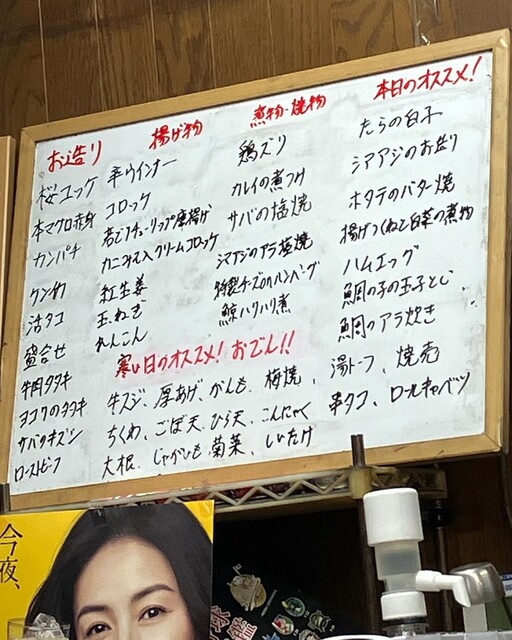 お造り
桜ユッケ
本マグロ赤身
カンパチ
ケンサキ
活タコ
盛合せ
牛肉タタキ
ヨコワのタタキ
サバのキズシ
ローストビーフ
揚げ物
辛ウインナー
コロッケ
若どりチューリップ唐揚げ
カニつめ入クリームコロッケ
紅生姜
玉ねぎ
れんこん
煮物・焼物
鶏ズリ
カレイの煮つけ
サバの塩焼
シマアジのアラ塩焼
特製チーズinハンバーグ
鯨ハリハリ煮
本日のオススメ!
たらの白子
シマアジのお造り
ホタテのバター焼
揚げつくねと白菜の煮物
ハムエッグ
鯛の子の玉子とじ
鯛のアラ炊き
寒い日のオススメ! おでん!!
牛スジ、厚あげ、がんも、梅焼、湯トーフ、焼売
ちくわ、ごぼ天、ひら天、こんにゃく、串タコ、ロールキャベツ
大根、じゃがいも、菊菜、しいたけ
今夜、